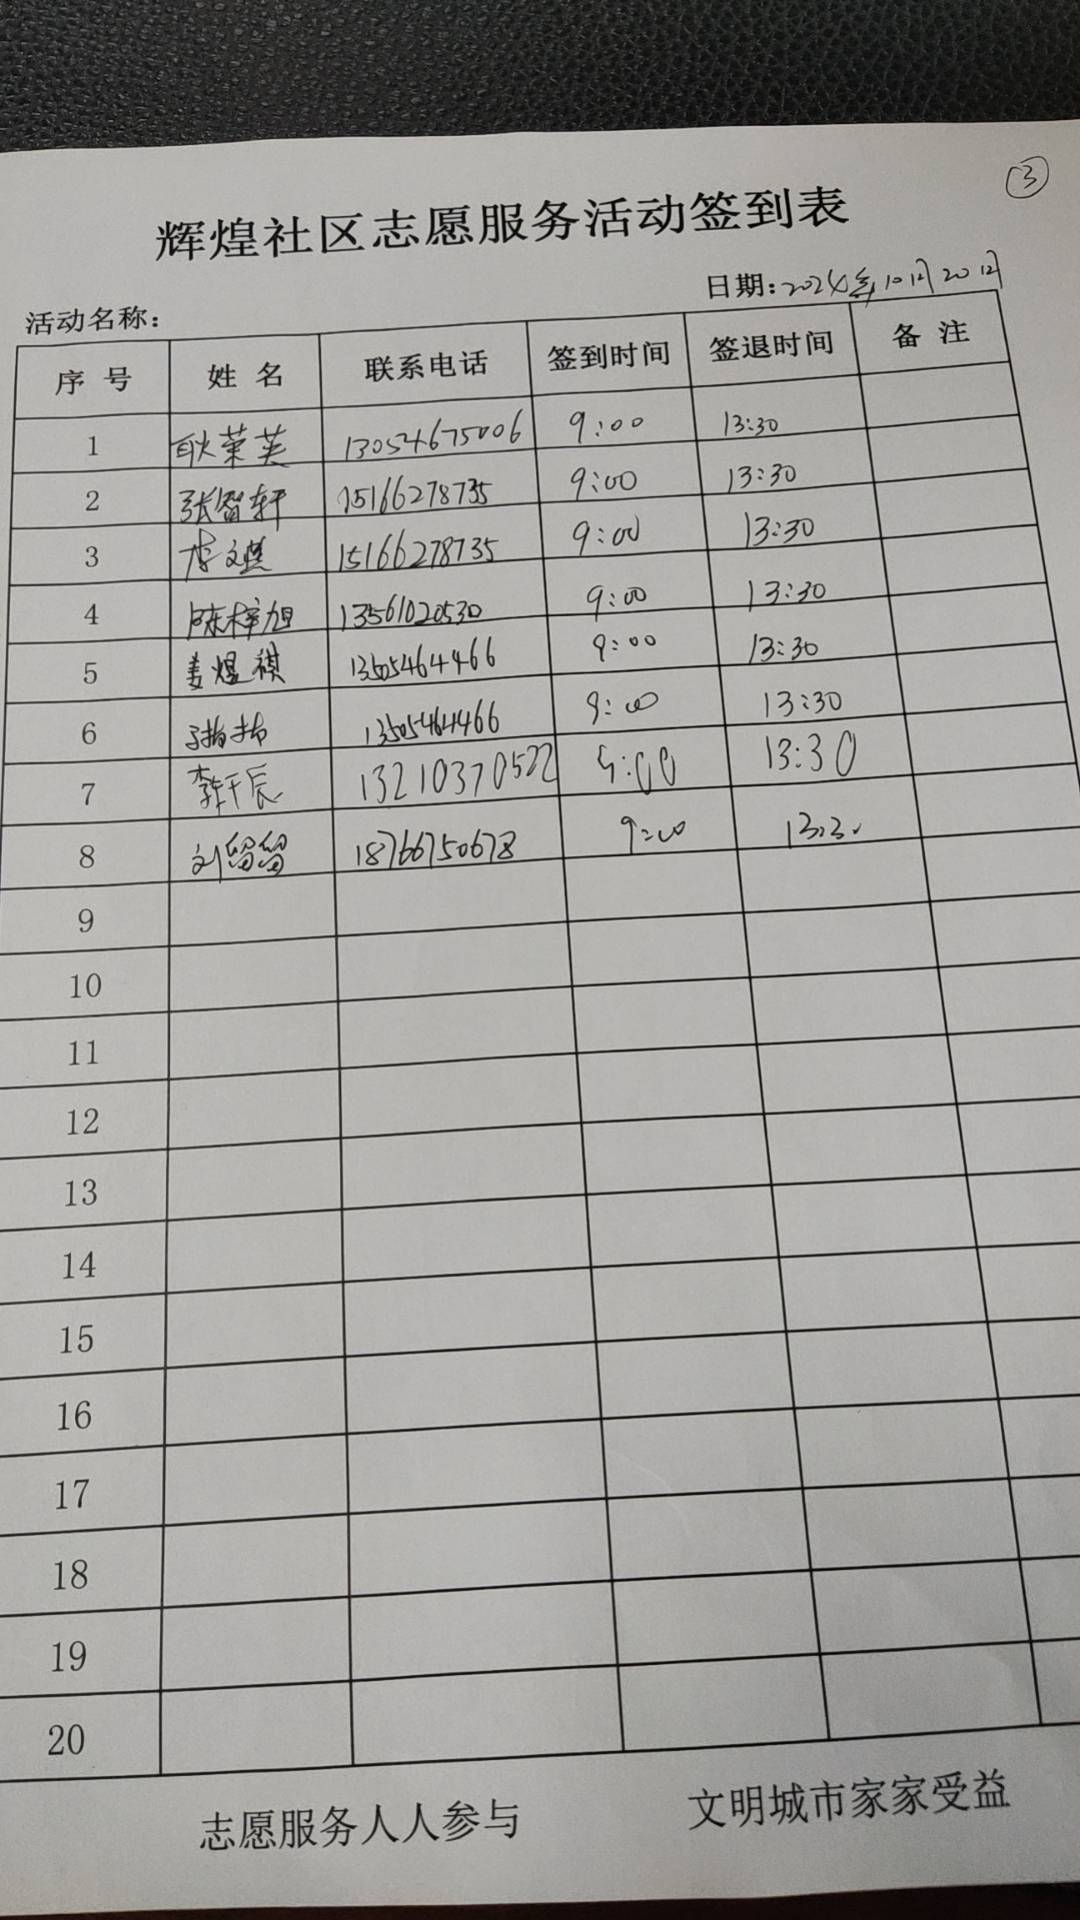 ③
辉煌社区志愿服务活动签到表
活动名称： 日期：2024年10月20日
序号 姓名 联系电话 签到时间 签退时间 备注
1 耿荣芙 13054675006 9:00 13:30
2 张智轩 15166278735 9:00 13:30
3 李文燕 15166278735 9:00 13:30
4 陈梓旭 13561020530 9:00 13:30
5 姜煜祺 13505464466 9:00 13:30
6 13505464466 9:00 13:30
7 李午辰 13210370522 9:00 13:30
8 刘留留 18766750678 9:00 13:30
9
10
11
12
13
14
15
16
17
18
19
20
志愿服务人人参与 文明城市家家受益